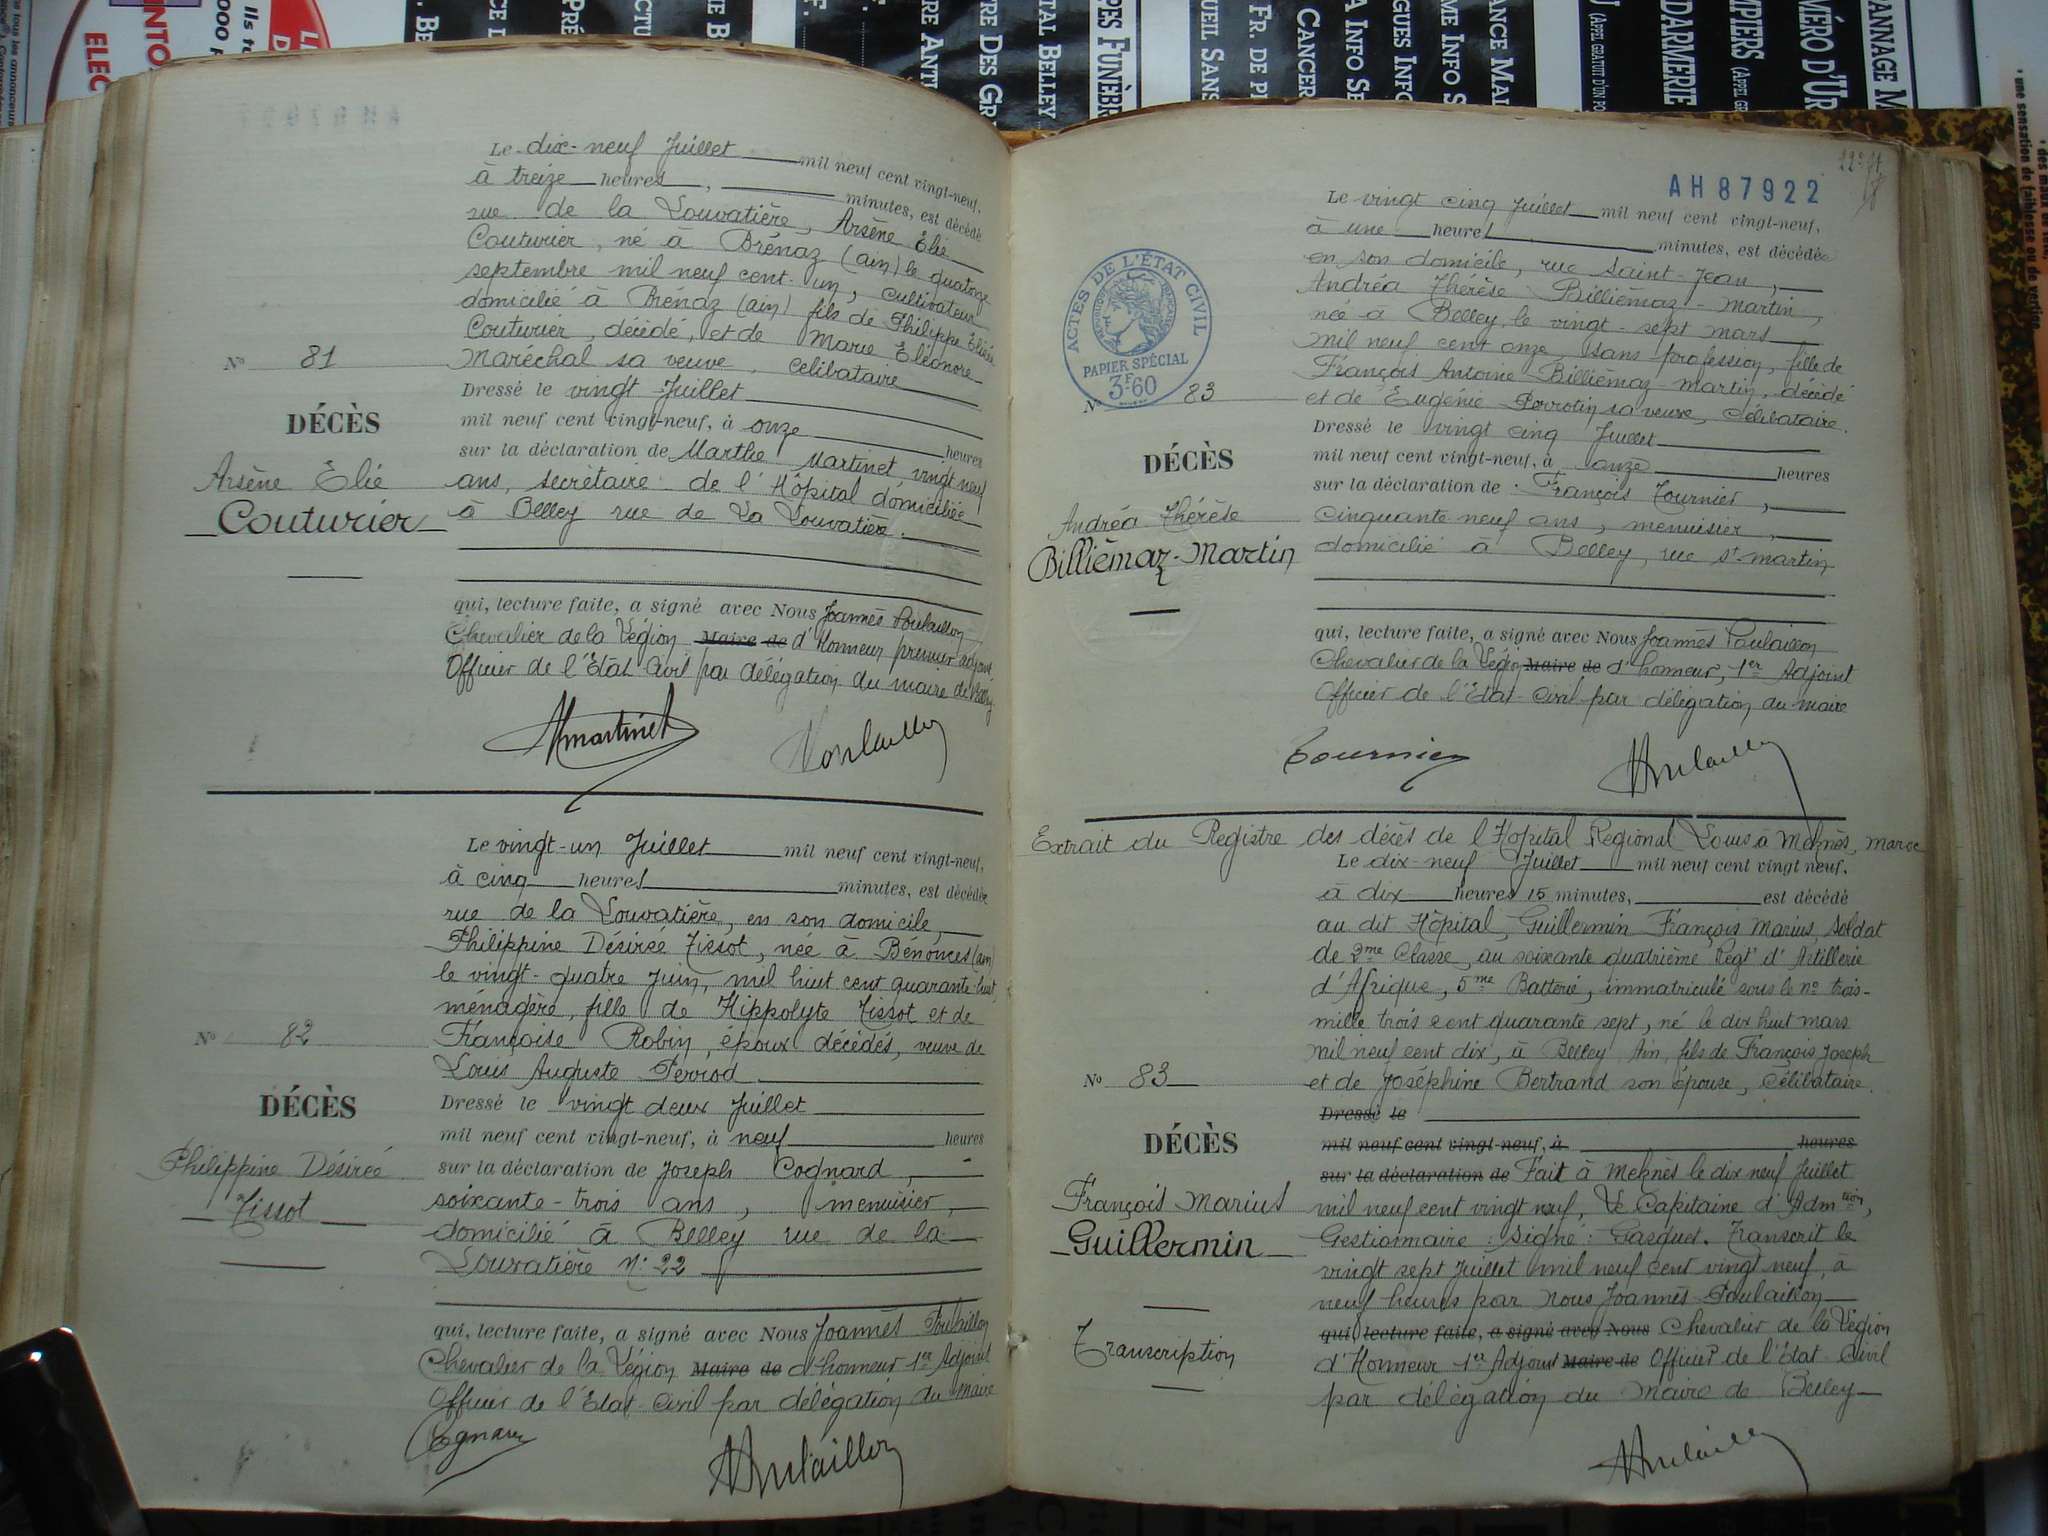 Le dix-neuf Juillet mil neuf cent vingt-neuf,
à treize heures, minutes, est décédé
rue de la Louvatière, Arsène Elie
Couturier, né à Brénaz (ain) le quatorze
septembre mil neuf cent-un, cultivateur
domicilié à Brénaz (ain) fils de Philippe
Couturier, décédé, et de Marie Eléonore
Maréchal sa veuve, célibataire
Dressé le vingt Juillet
mil neuf cent vingt-neuf, à onze heures
sur la déclaration de Marthe Martinet vingt neuf
ans, secrétaire de l'Hôpital domiciliée
à Belley rue de La Louvatière.
qui, lecture faite, a signé avec Nous Joannès Poulaillon
Chevalier de la Légion Maire de d'Honneur premier adjoint
Officier de l'Etat Civil par délégation du maire de Belley
Nº 81
DÉCÈS
Arsène Elie
Couturier
Martinet
Poulaillon
Le vingt-un Juillet mil neuf cent vingt-neuf,
à cinq heures minutes, est décédée
rue de la Louvatière, en son domicile,
Philippine Désirée Tissot, née à Bénonces (ain)
le vingt-quatre Juin, mil huit cent quarante-huit
ménagère, fille de Hippolyte Tissot et de
Françoise Robin, époux décédés, veuve de
Louis Auguste Perrod
Dressé le vingt deux Juillet
mil neuf cent vingt-neuf, à neuf heures
sur la déclaration de Joseph Cognard,
soixante-trois ans, menuisier,
domicilié à Belley rue de la
Louvatière Nº 22
qui, lecture faite, a signé avec Nous Joannès Poulaillon
Chevalier de la Légion Maire de d'honneur 1er Adjoint
Officier de l'Etat Civil par délégation du Maire
Nº 82
DÉCÈS
Philippine Désirée
Tissot
Cognard
Poulaillon
AH87922
ACTES DE L'ÉTAT CIVIL
PAPIER SPÉCIAL
3F60
Le vingt cinq Juillet mil neuf cent vingt-neuf,
à une heure minutes, est décédée
en son domicile, rue Saint-Jean,
Andréa Thérèse Billiémaz-Martin,
née à Belley, le vingt-sept mars
mil neuf cent onze, sans profession, fille de
François Antoine Billiémaz-Martin, décédé
et de Eugénie Perrotin sa veuve, Célibataire.
Dressé le vingt cinq Juillet
mil neuf cent vingt-neuf, à onze heures
sur la déclaration de François Tournier,
cinquante neuf ans, menuisier,
domicilié à Belley, rue St-martin
qui, lecture faite, a signé avec Nous Joannès Poulaillon
Chevalier de la Légion Maire de d'honneur, 1er Adjoint
Officier de l'Etat-Civil par délégation du maire
Nº 83
DÉCÈS
Andréa Thérèse
Billiémaz-Martin
Tournier
Poulaillon
Extrait du Registre des décès de l'Hôpital Régional Louis à Meknès, Maroc
Le dix-neuf Juillet mil neuf cent vingt neuf.
à dix heures 15 minutes, est décédé
au dit Hôpital, Guillermin François Marius, soldat
de 2me Classe, au soixante quatrième Régt d'Artillerie
d'Afrique, 5me Batterie, immatriculé sous le nº trois-
mille trois cent quarante sept, né le dix huit mars
mil neuf cent dix, à Belley Ain, fils de François Joseph
et de Joséphine Bertrand son épouse, Célibataire.
Dressé le
mil neuf cent vingt-neuf, à heures
sur la déclaration de Fait à Meknès le dix neuf Juillet
mil neuf cent vingt neuf, Le Capitaine d'Admtion,
Gestionnaire : signé : Gasquet. Transcrit le
vingt sept Juillet mil neuf cent vingt neuf, à
neuf heures par nous Joannès Poulaillon
qui, lecture faite, a signé avec Nous Chevalier de la Légion
d'Honneur 1er Adjoint Maire de Officier de l'Etat-Civil
par délégation du Maire de Belley
Nº 83
DÉCÈS
François Marius
Guillermin
Transcription
Poulaillon